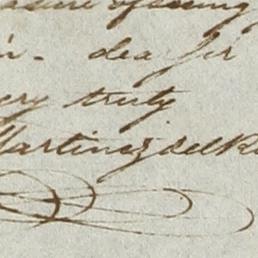 asure of seeing
in - dea sir
ery truly
Martinez del R